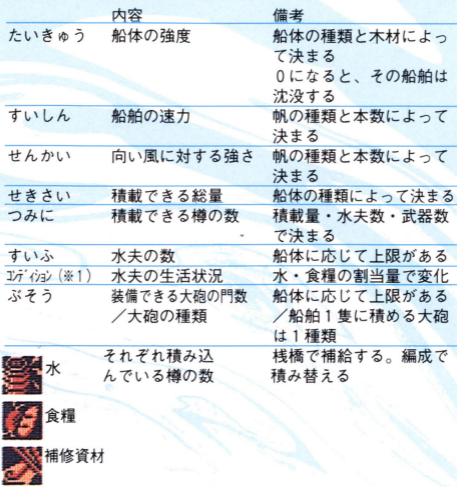 内容 備考
たいきゅう 船体の強度 船体の種類と木材によっ
て決まる
0になると、その船舶は
沈没する
すいしん 船舶の速力 帆の種類と本数によって
決まる
せんかい 向い風に対する強さ 帆の種類と本数によって
決まる
せきさい 積載できる総量 船体の種類によって決まる
つみに 積載できる樽の数 積載量・水夫数・武器数
で決まる
すいふ 水夫の数 船体に応じて上限がある
コンディション(※1) 水夫の生活状況 水・食糧の割当量で変化
ぶそう 装備できる大砲の門数 船体に応じて上限がある
/大砲の種類 /船舶1隻に積める大砲
は1種類
水 それぞれ積み込 桟橋で補給する。編成で
んでいる樽の数 積み替える
食糧
補修資材